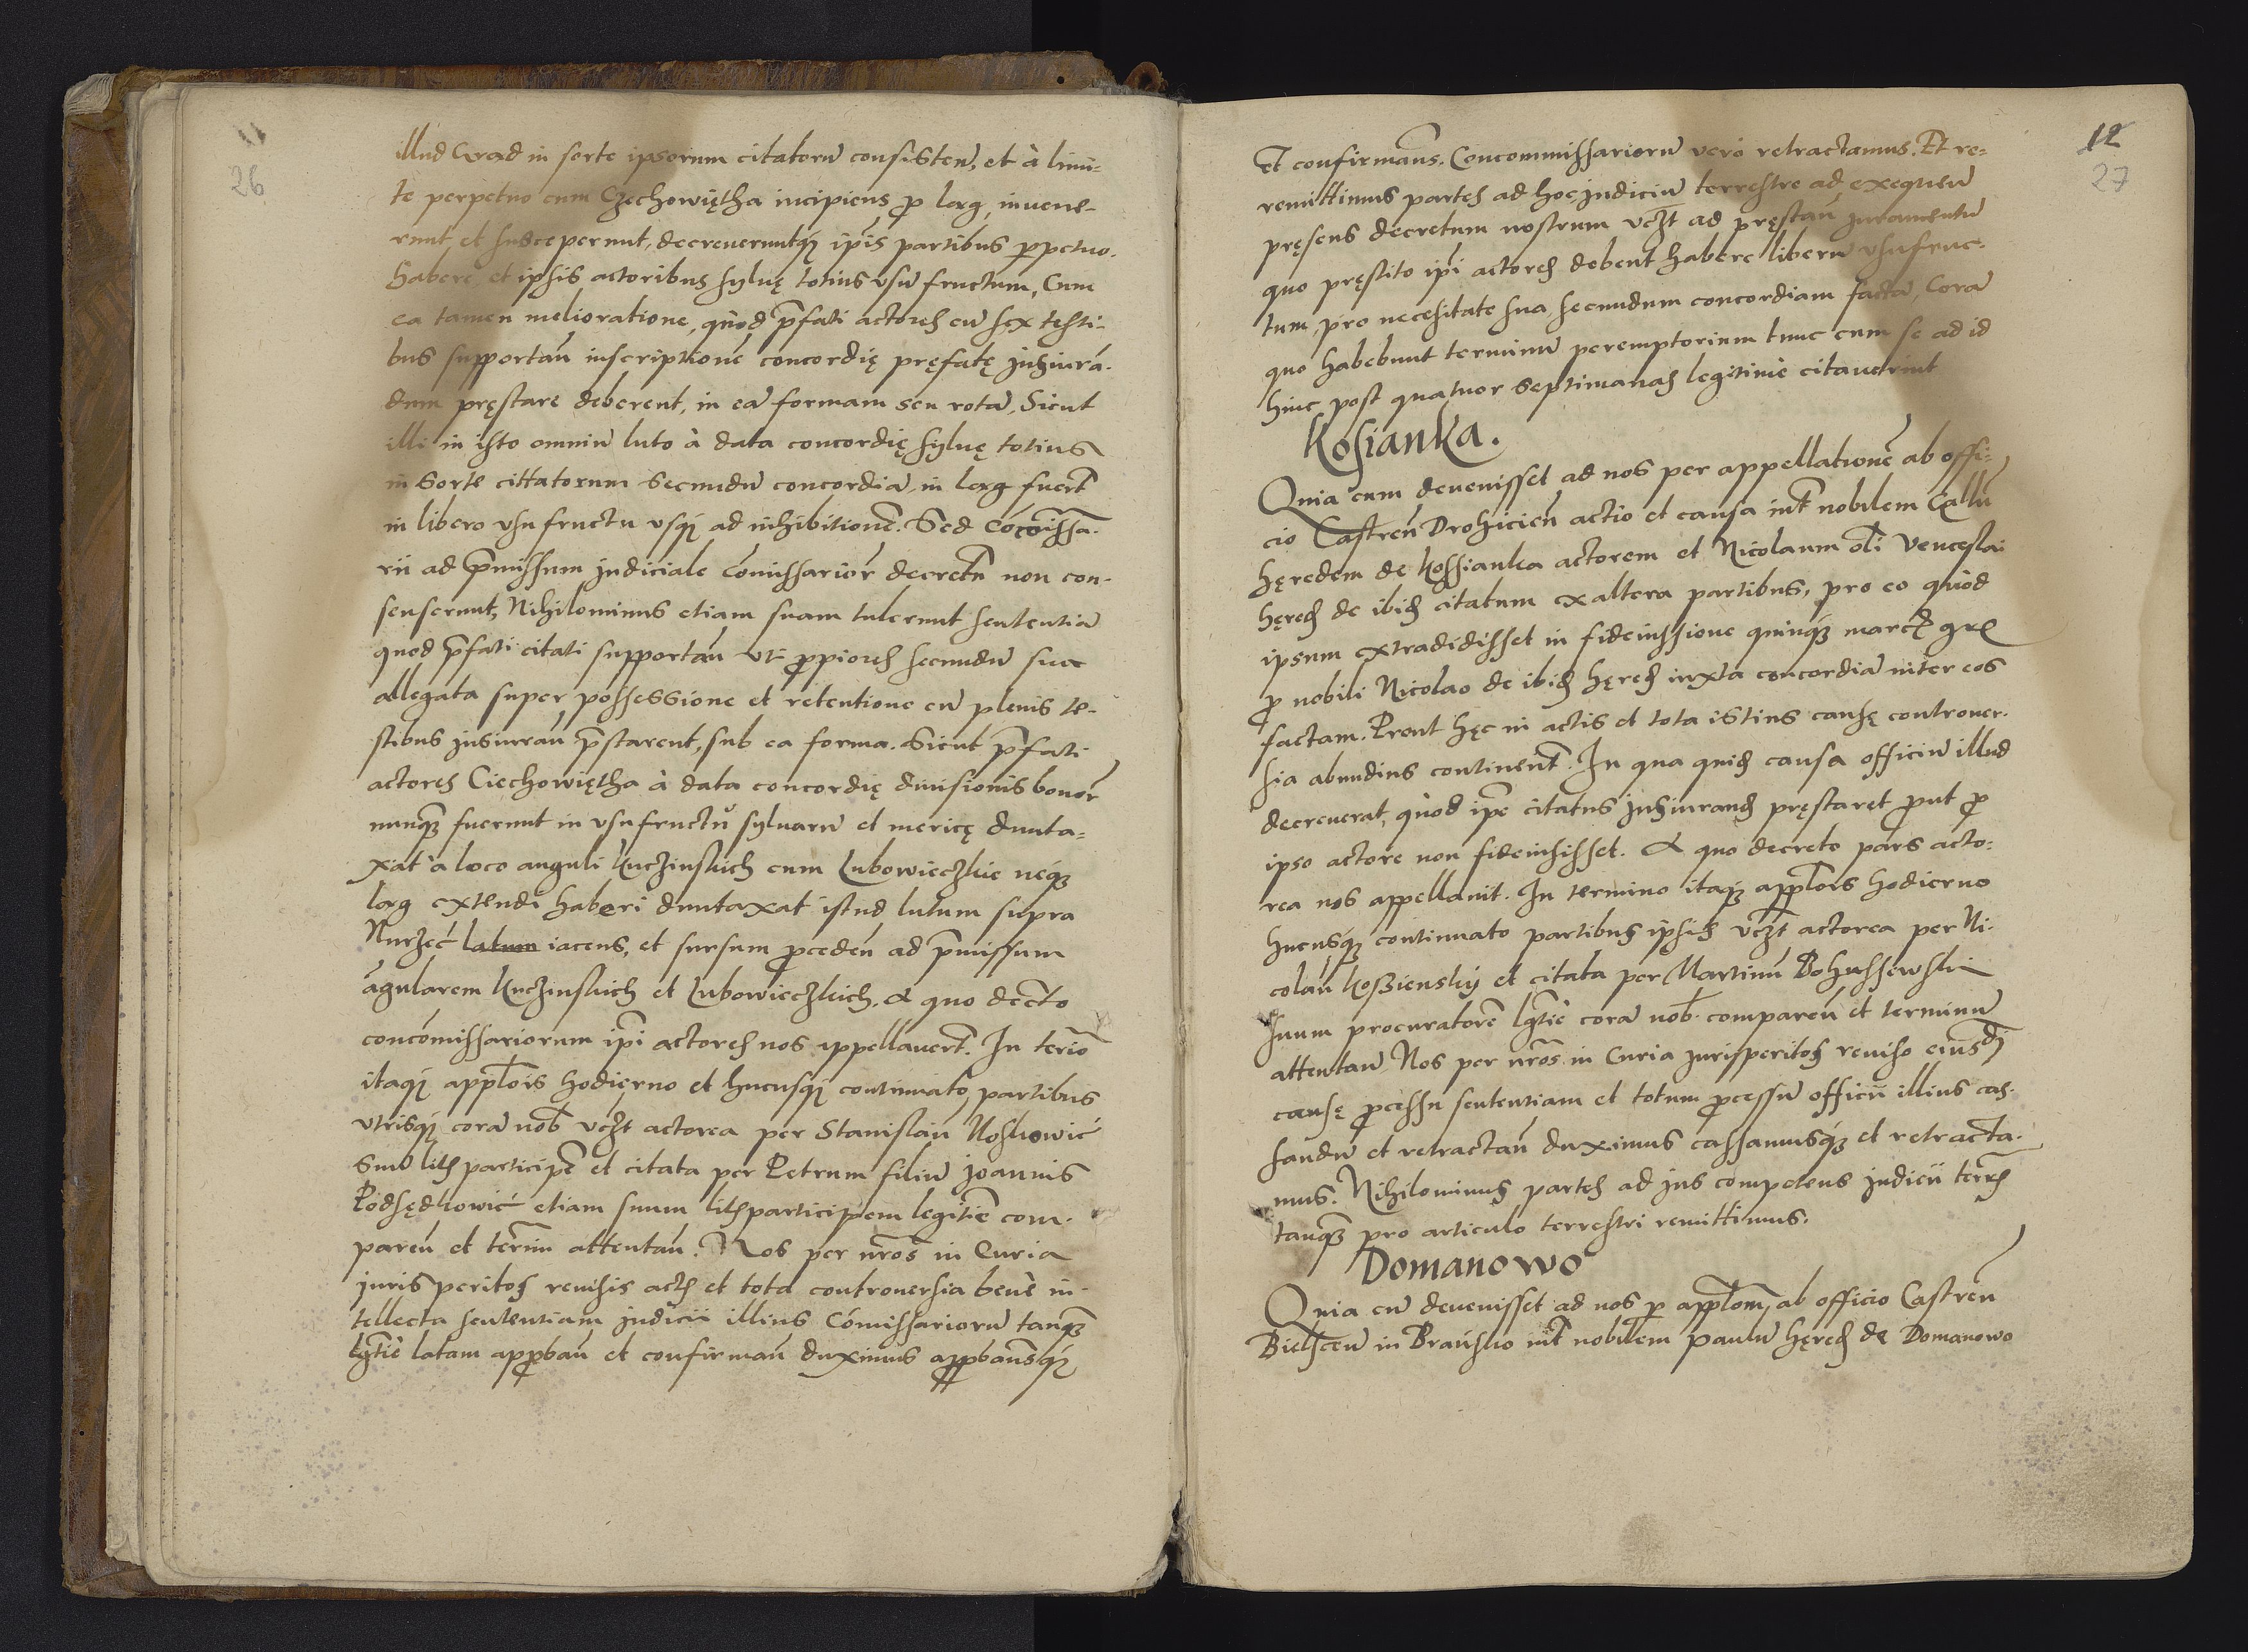 11
26
illud Grad in sorte ipsorum citatorũ consisteñ, et à limi-
te perpetuo cum Czechowiętha incipiens p̱ lag invene-
runt, et susceperunt, decreueruntq́ȝ ip̃is partibus p̱petuo.
habere et ipsis actoribus syluę totius vsũ fructum, Cum
ea tamen melioratione, quòd p̃fati actores cũ sex testi-
bus supportañ inscriptionẽ concordię pręfatę jusiurã-
dum pręstare deberent, in eã formam seu rotã, Sicut
illi in isto omniũ luto à data concordię syluę totius
in Sorte cittatorum Secundũ concordiã in lag fuerũt
in libero vsu fructu vsq́ȝ ad inhibitionẽ. Sed Cõcomissa-
rii ad p̃missum judiciale Comissarioȓ decretũ non con-
senserunt, Nihilominus etiam suam tulerunt sententiã
quod p̃fati citati supportañ vti p̱piores secundũ sua
allegata super possessione et retentione cũ plenis te-
stibus jusiurañ p̃starent, sub ea forma. Sicut p̃fati
actores Ciechowiętha à data concordię diuisionis bonoȓ
nunq̃ȝ fuerunt in vsufructu syluarũ et mericę dunta-
xat à loco anguli Kuczinskich cum Lubowieczkie neq́ȝ
lag extendi haberi duntaxat istud lutum supra
Nurzeć latum iacens, et sursum p̱cedeñ ad p̃missum
ãgularem Kuczinskich et Lubowieczkich. A quo decr̃to
concomissariorum ip̃i actores nos appellauert̃. In teriõ
itaq́ȝ app̃lois hodierno et hucusq́ȝ continuato, partibus
vtrisq́ȝ corã nob̃ vcz̃t actorea per Stanislaũ Noskowić
Suũ litis participẽ et citata per Petrum filiũ Joannis
Podsędkowić etiam suum litisparticipem legitiẽ com-
pareñ et ter̃im attentañ. Nos per nr̃os in Curia
juris peritos reuisis actis et tota controuersia benè in-
tellecta sententiam judicii illius Comissariorũ tanq̃ȝ
lg̃tiẽ latam app̱bañ et confirmañ duximus app̱bamusq́ȝ
12
27
Et confirmam̃s. Concommissariorũ verò retractamus. Et re-
remittimus partes ad hoc judiciũ terrestre ad exequeñ
pręsens decretum nostrum vcz̃t ad pręstañ juramentũ
quo pręstito ip̃i actores debent habere liberũ vsufruc-
tum, pro necesitate sua secundum concordiam factã, Corã
quo habebunt terminũ peremptorium tunc cum se ad id
hinc post quatuor Septimanas legitimè citauerint
Kosianka.
Quia cum deuenisset ad nos per appellationẽ ab offi-
cio Castreñ Drohicieñ actio et causa int̃ nobilem Gallũ
hęredem de Kossianka actorem et Nicolaum ol̃i Venceslai
hęred̃ de ibid̃ citatum ex altera partibus, pro eo quòd
ipsum extradidisset in fideiussione quinq́ȝ marc̃ gr̃
p̱ nobili Nicolao de ibid̃ hęred̃ iuxta concordiã inter eos
factam. Prout hęc in actis et tota istius causę controuer-
sia abundius continent̃. In qua quid̃ causa officiũ illud
decreuerat, quòd ip̃e citatus jusiurand̃ pręstaret p̱ut p̱
ipso actore non fideiusisset. A quo decreto pars acto-
rea nos appellauit. In termino itaq́ȝ app̃lois hodierno
hucusq́ȝ continuato partibus ipsis vcz̃t actorea per Ni-
colaũ Koßienskij et citata per Martinũ Bohussewski
suum procuratorẽ lg̃tiẽ corã nob̃ compareñ et terminũ
attentañ Nos per nr̃os in Curia jurisperitos reuiso eiusd̃
causę p̱cessu sententiam et totum p̱cessũ officii illius cas-
sandũ et retractañ duximus cassamusq́ȝ et retracta-
mus. Nihilominus partes ad jus competens judicii terr̃s
tanq̃ȝ pro articulo terrestri remittimus.
Domanowo
Quia cũ deuenisset ad nos p̱ app̃lom̃, ab officio Castreñ
Bielsceñ in Brańsko int̃ nobilem Paulũ hęred̃ de Domanowo